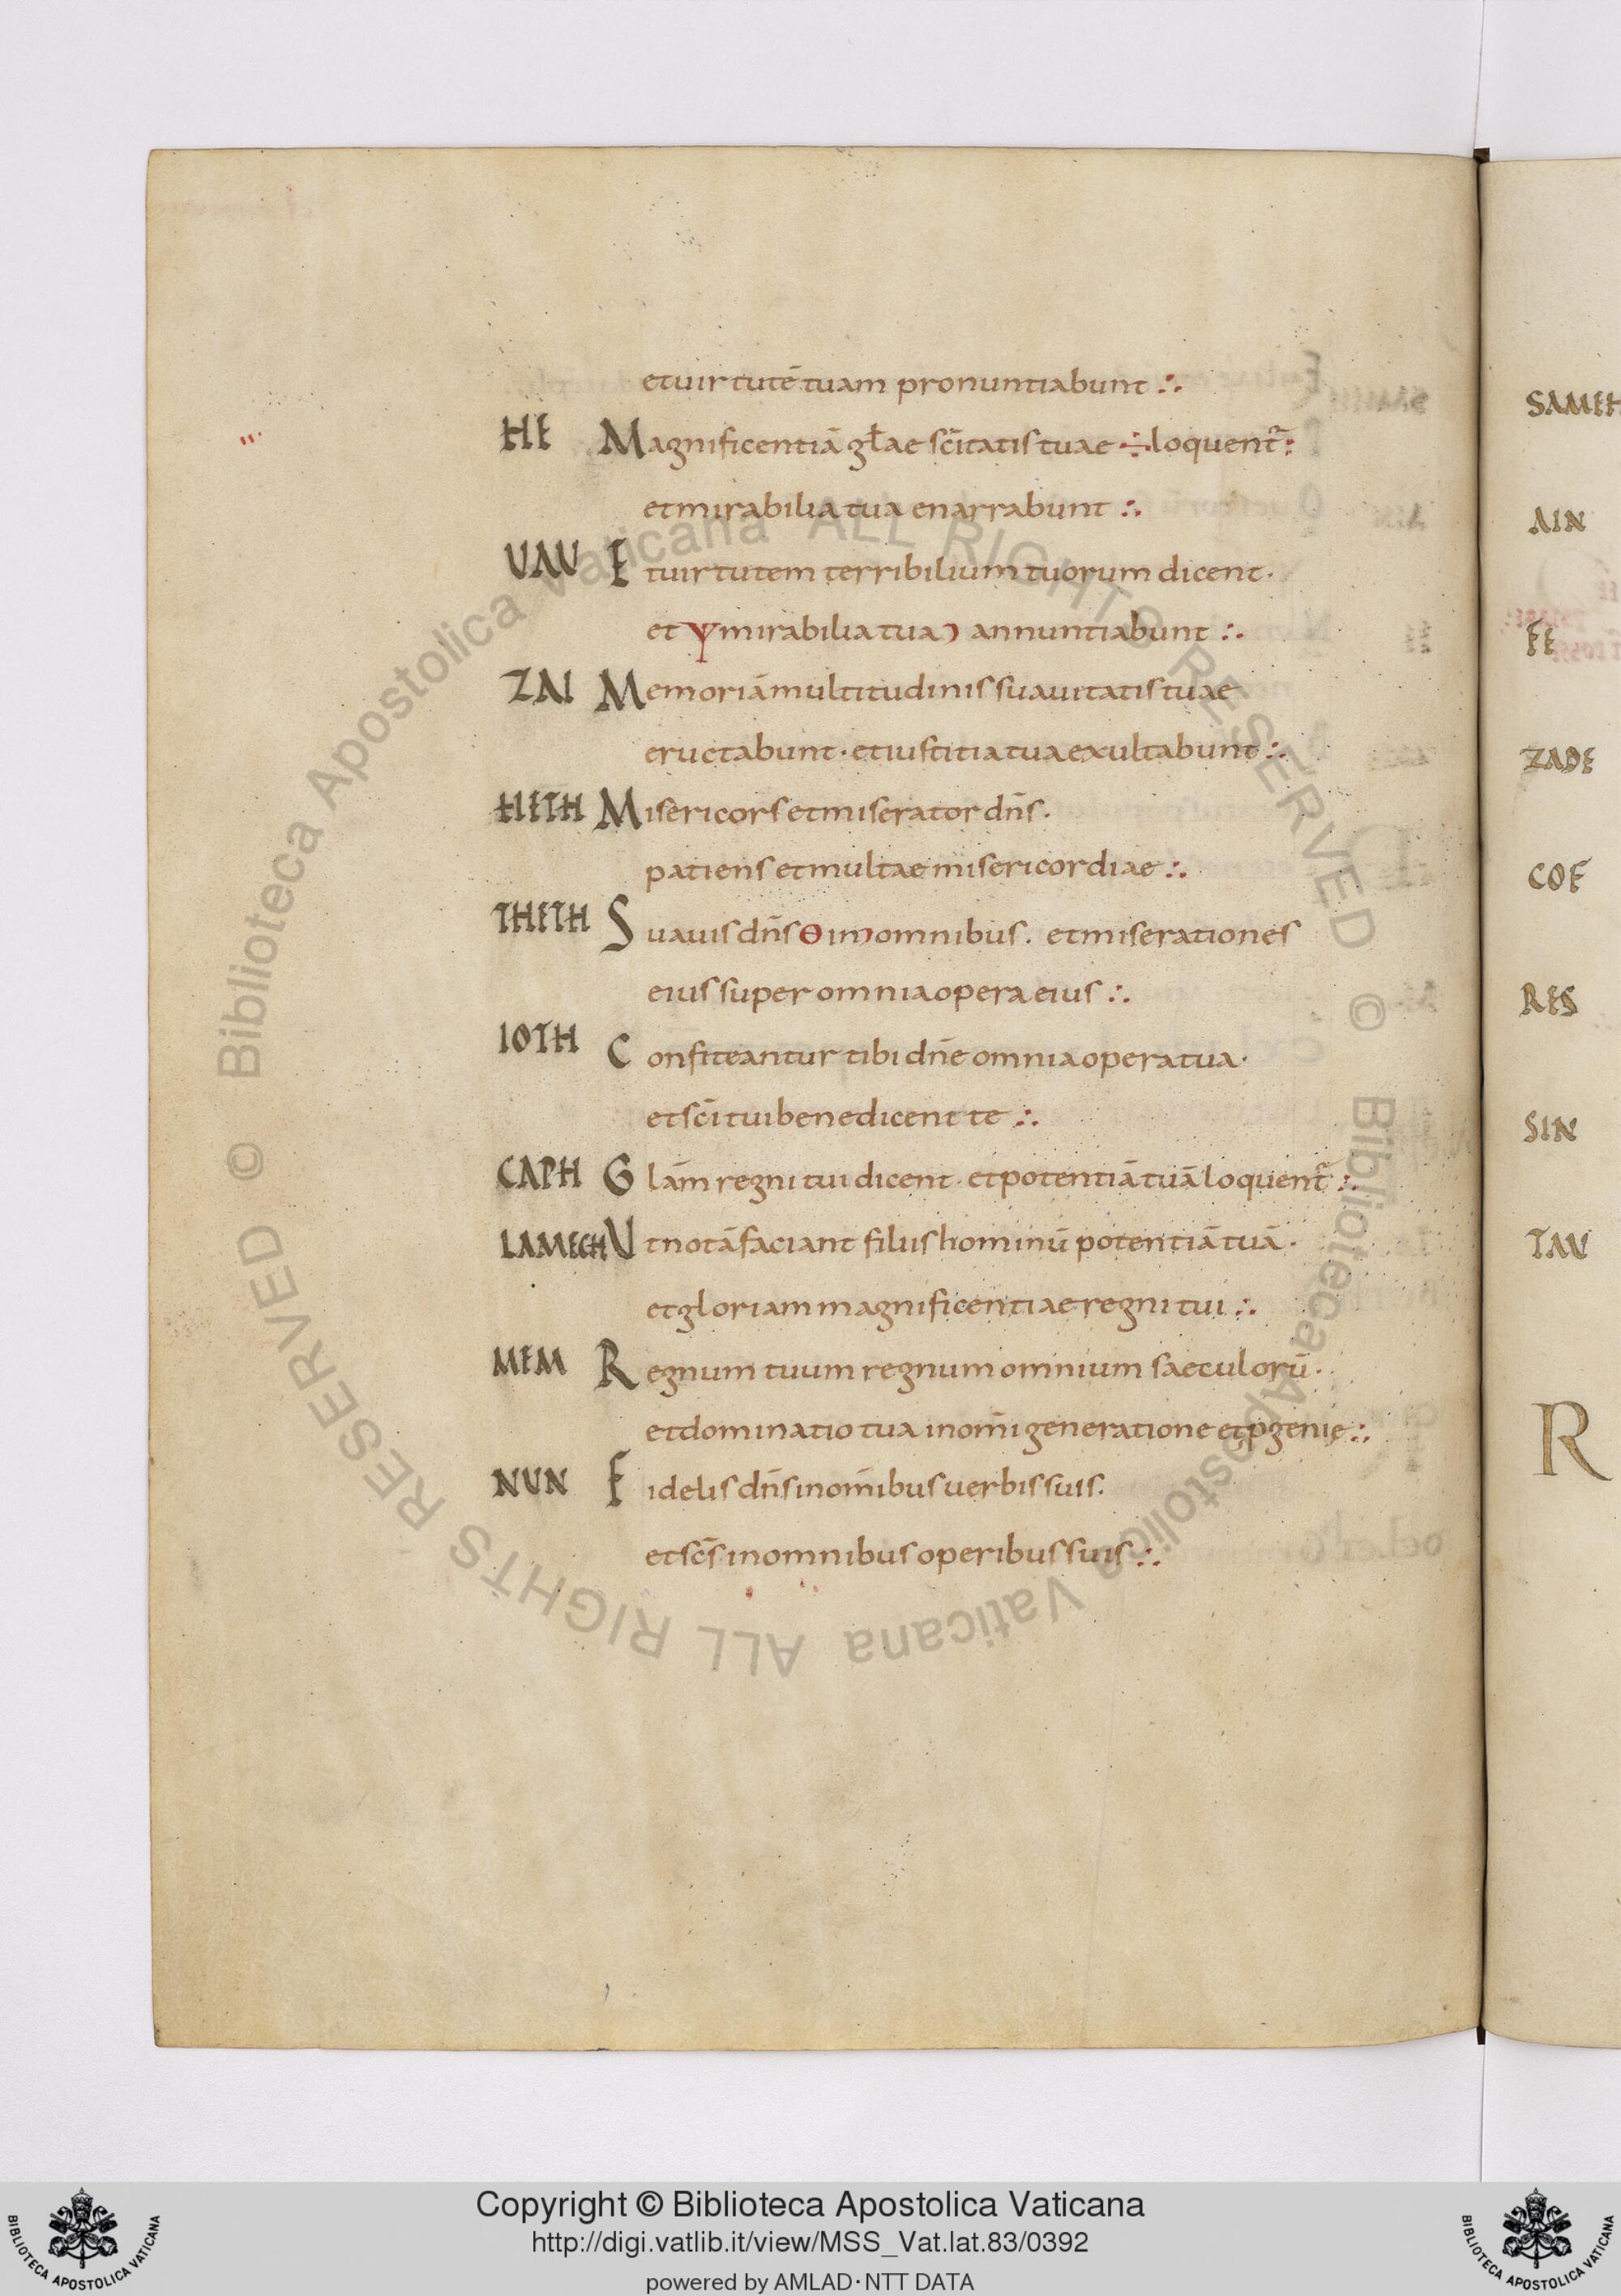 et uirtutē tuam pronuntiabunt ∴
HE Magnificentiā gƚae scītatis tuae ÷ loquent᷑:
et mirabilia tua enarrabunt ∴
UAU Et uirtutem terribilium tuorum dicent·
et ψ mirabilia tua Ɔ annuntiabunt ∴
ZAI Memoriā multitudinis suauitatis tuae
eructabunt· et iustitia tua exultabunt ∴
HETH Misericors et miserator dn̄s·
patiens et multae misericordiae ∴
THETH Suauis dn̄s Θ in Ɔ omnibus. et miserationes
eius super omnia opera eius ∴
IOTH Confiteantur tibi dn̄e omnia opera tua·
et sc̄i tui benedicent te ∴
CAPH Glām regni tui dicent· et potentiā tuā loquent᷑ ∴
LAMECH Ut notā faciant filiis hominū potentiā tuā·
et gloriam magnificentiae regni tui ∴
MEM Regnum tuum regnum omnium saeculorū·
et dominatio tua in om̄i generatione et ꝓgenie ∴
NUN Fidelis dn̄s in om̄ibus uerbis suis.
et sc̄s in omnibus operibus suis ∴
SAMEH
AIN
FE
ZADE
COF
RES
SIN
TAU
R
© Biblioteca Apostolica Vaticana ALL RIGHTS RESERVED © Biblioteca Apostolica Vaticana ALL RIGHTS RESERVED
Copyright © Biblioteca Apostolica Vaticana
http://digi.vatlib.it/view/MSS_Vat.lat.83/0392
powered by AMLAD·NTT DATA
BIBLIOTECA APOSTOLICA VATICANA
BIBLIOTECA APOSTOLICA VATICANA